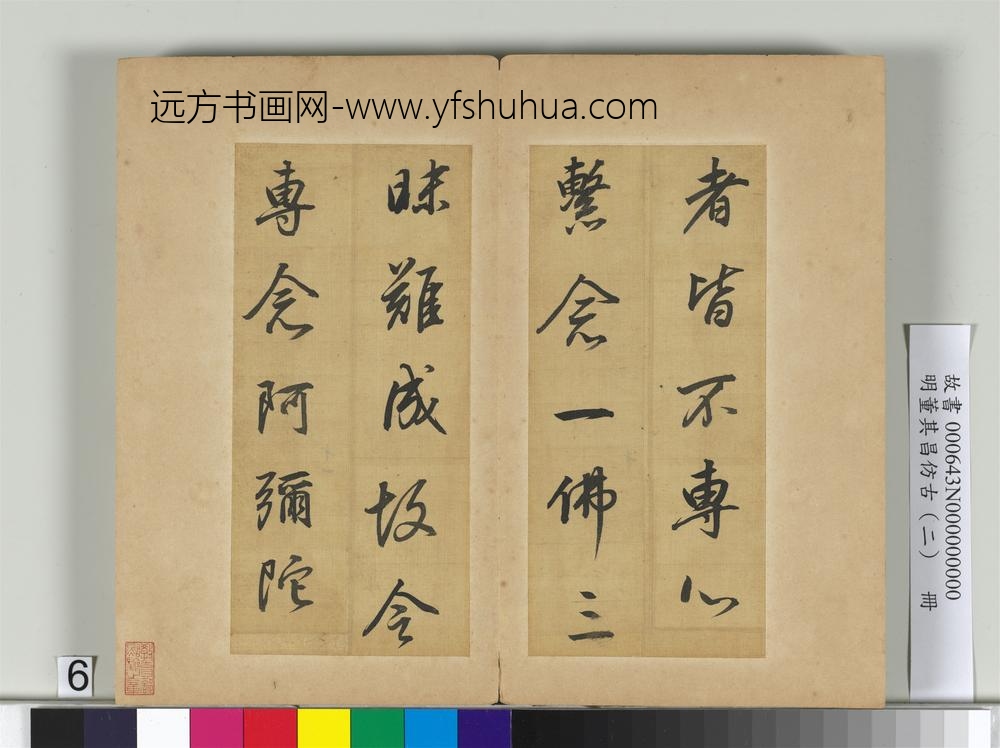 远方书画网-www.yfshuhua.com
者皆不專心
繫念一佛三
昧難成故令
專念阿彌陀
故書 000643N000000000
明董其昌仿古(二) 冊
6